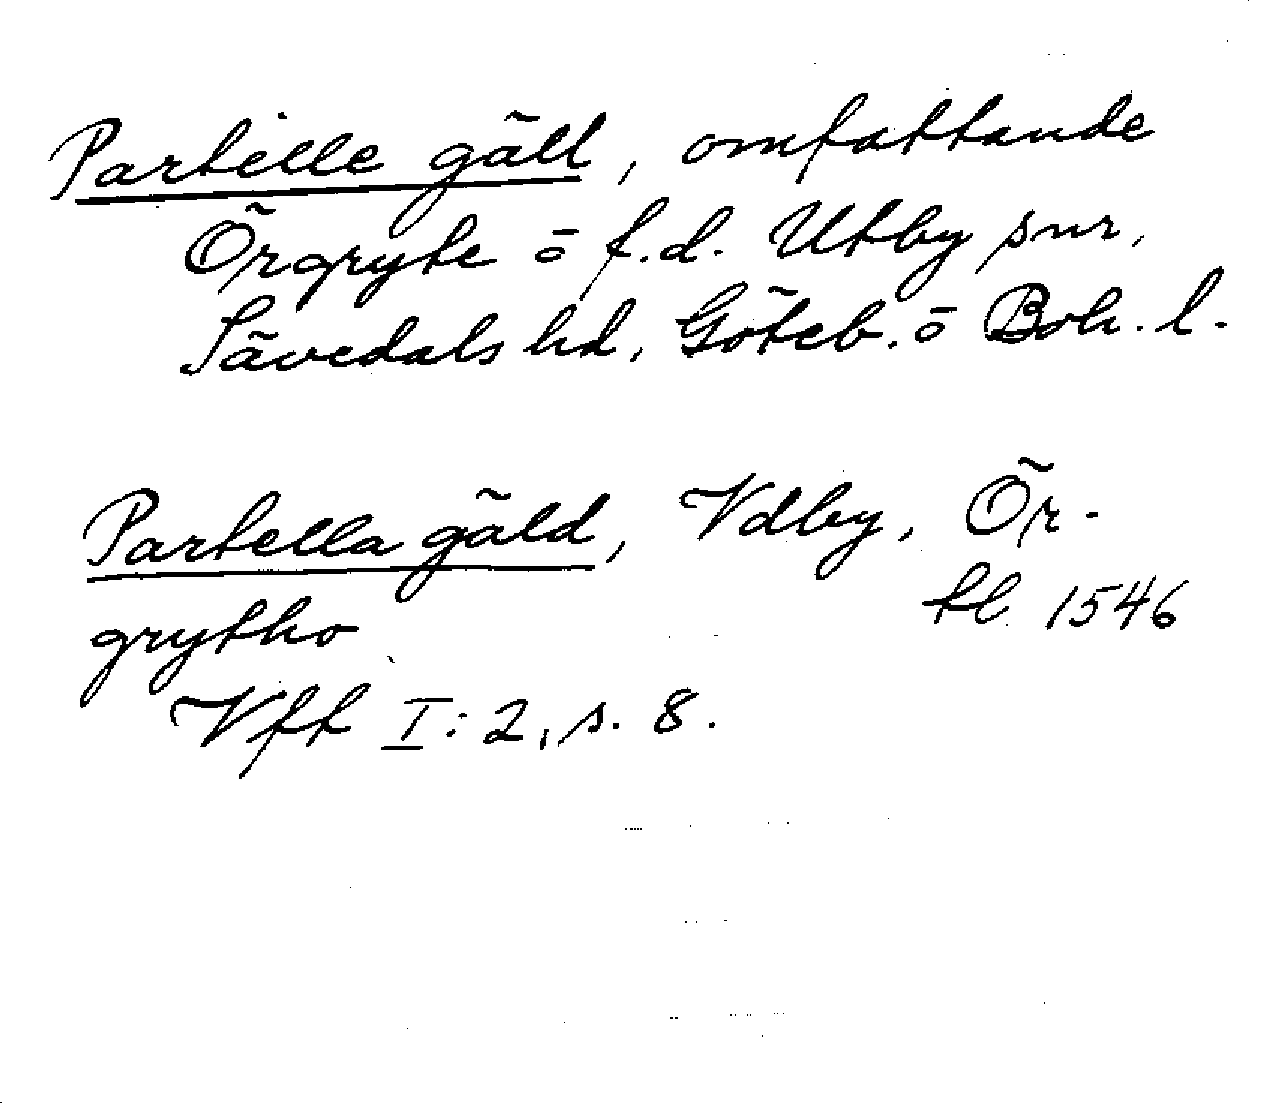 Partille gäll, omfattande
Örgryte o f.d. Utby snr,
Sävedals hd, Göteb. o Boh. l.
Partella gäld, Vdby, Ör-
grytho
tl 1546
Vft I: 2, s. 8.